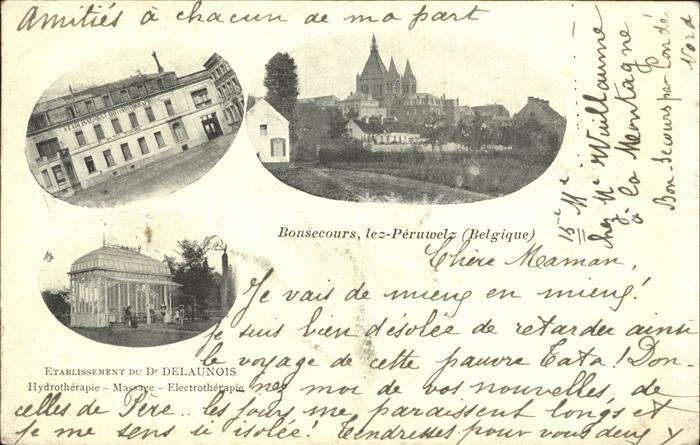 Amitiés à chacun de ma part
ETABLISSEMENT HYDROTHERAPIQUE
Bonsecours, lez-Péruwelz (Belgique)
Chère Maman,
Je vais de mieux en mieux!
je suis bien désolée de retarder ainsi
le voyage de cette pauvre Tata! Don-
ETABLISSEMENT DU Dr DELAUNOIS
Hydrothérapie - Massage - Electrothérapie
nez moi de vos nouvelles, de
celles de Père.. les jours me paraissent longs et
je me sens si isolée! Tendresses pour vous deux
chez Me Wuillaume
à la Montagne
Bon-Secours par Condé
Nord